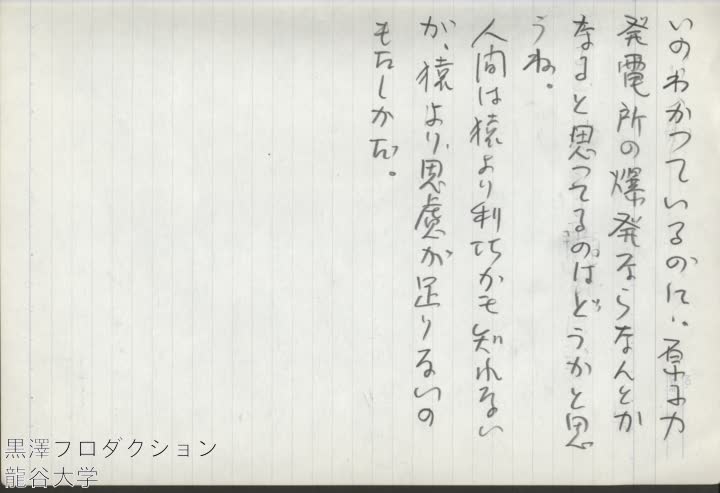 いのわかつているのに、、原子力
発電所の爆発ならなんとか
なると思つてるのはどうかと思
うね。
人間は猿より利巧かも知れない
が、猿より思慮が足りないの
もたしかだ。
黒澤プロダクション
龍谷大学